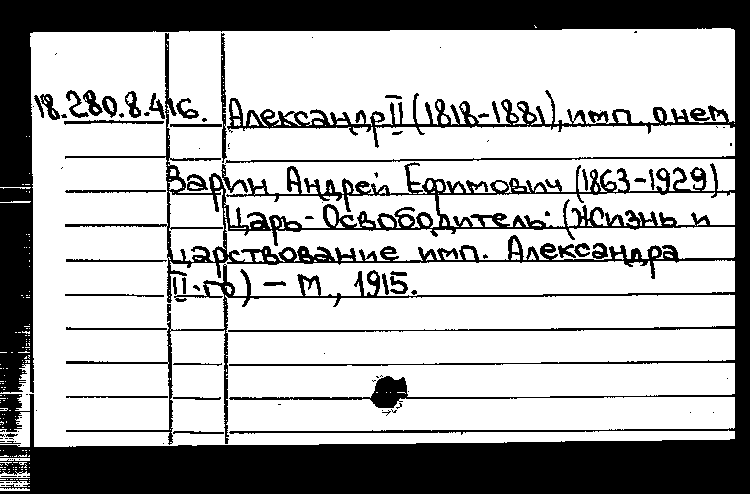 18.280.8.416. Александр II (1818-1881), имп., о нем.
Зарин, Андрей Ефимович (1863-1929).
Царь-Освободитель: (Жизнь и
царствование имп. Александра
II-го) - М., 1915.